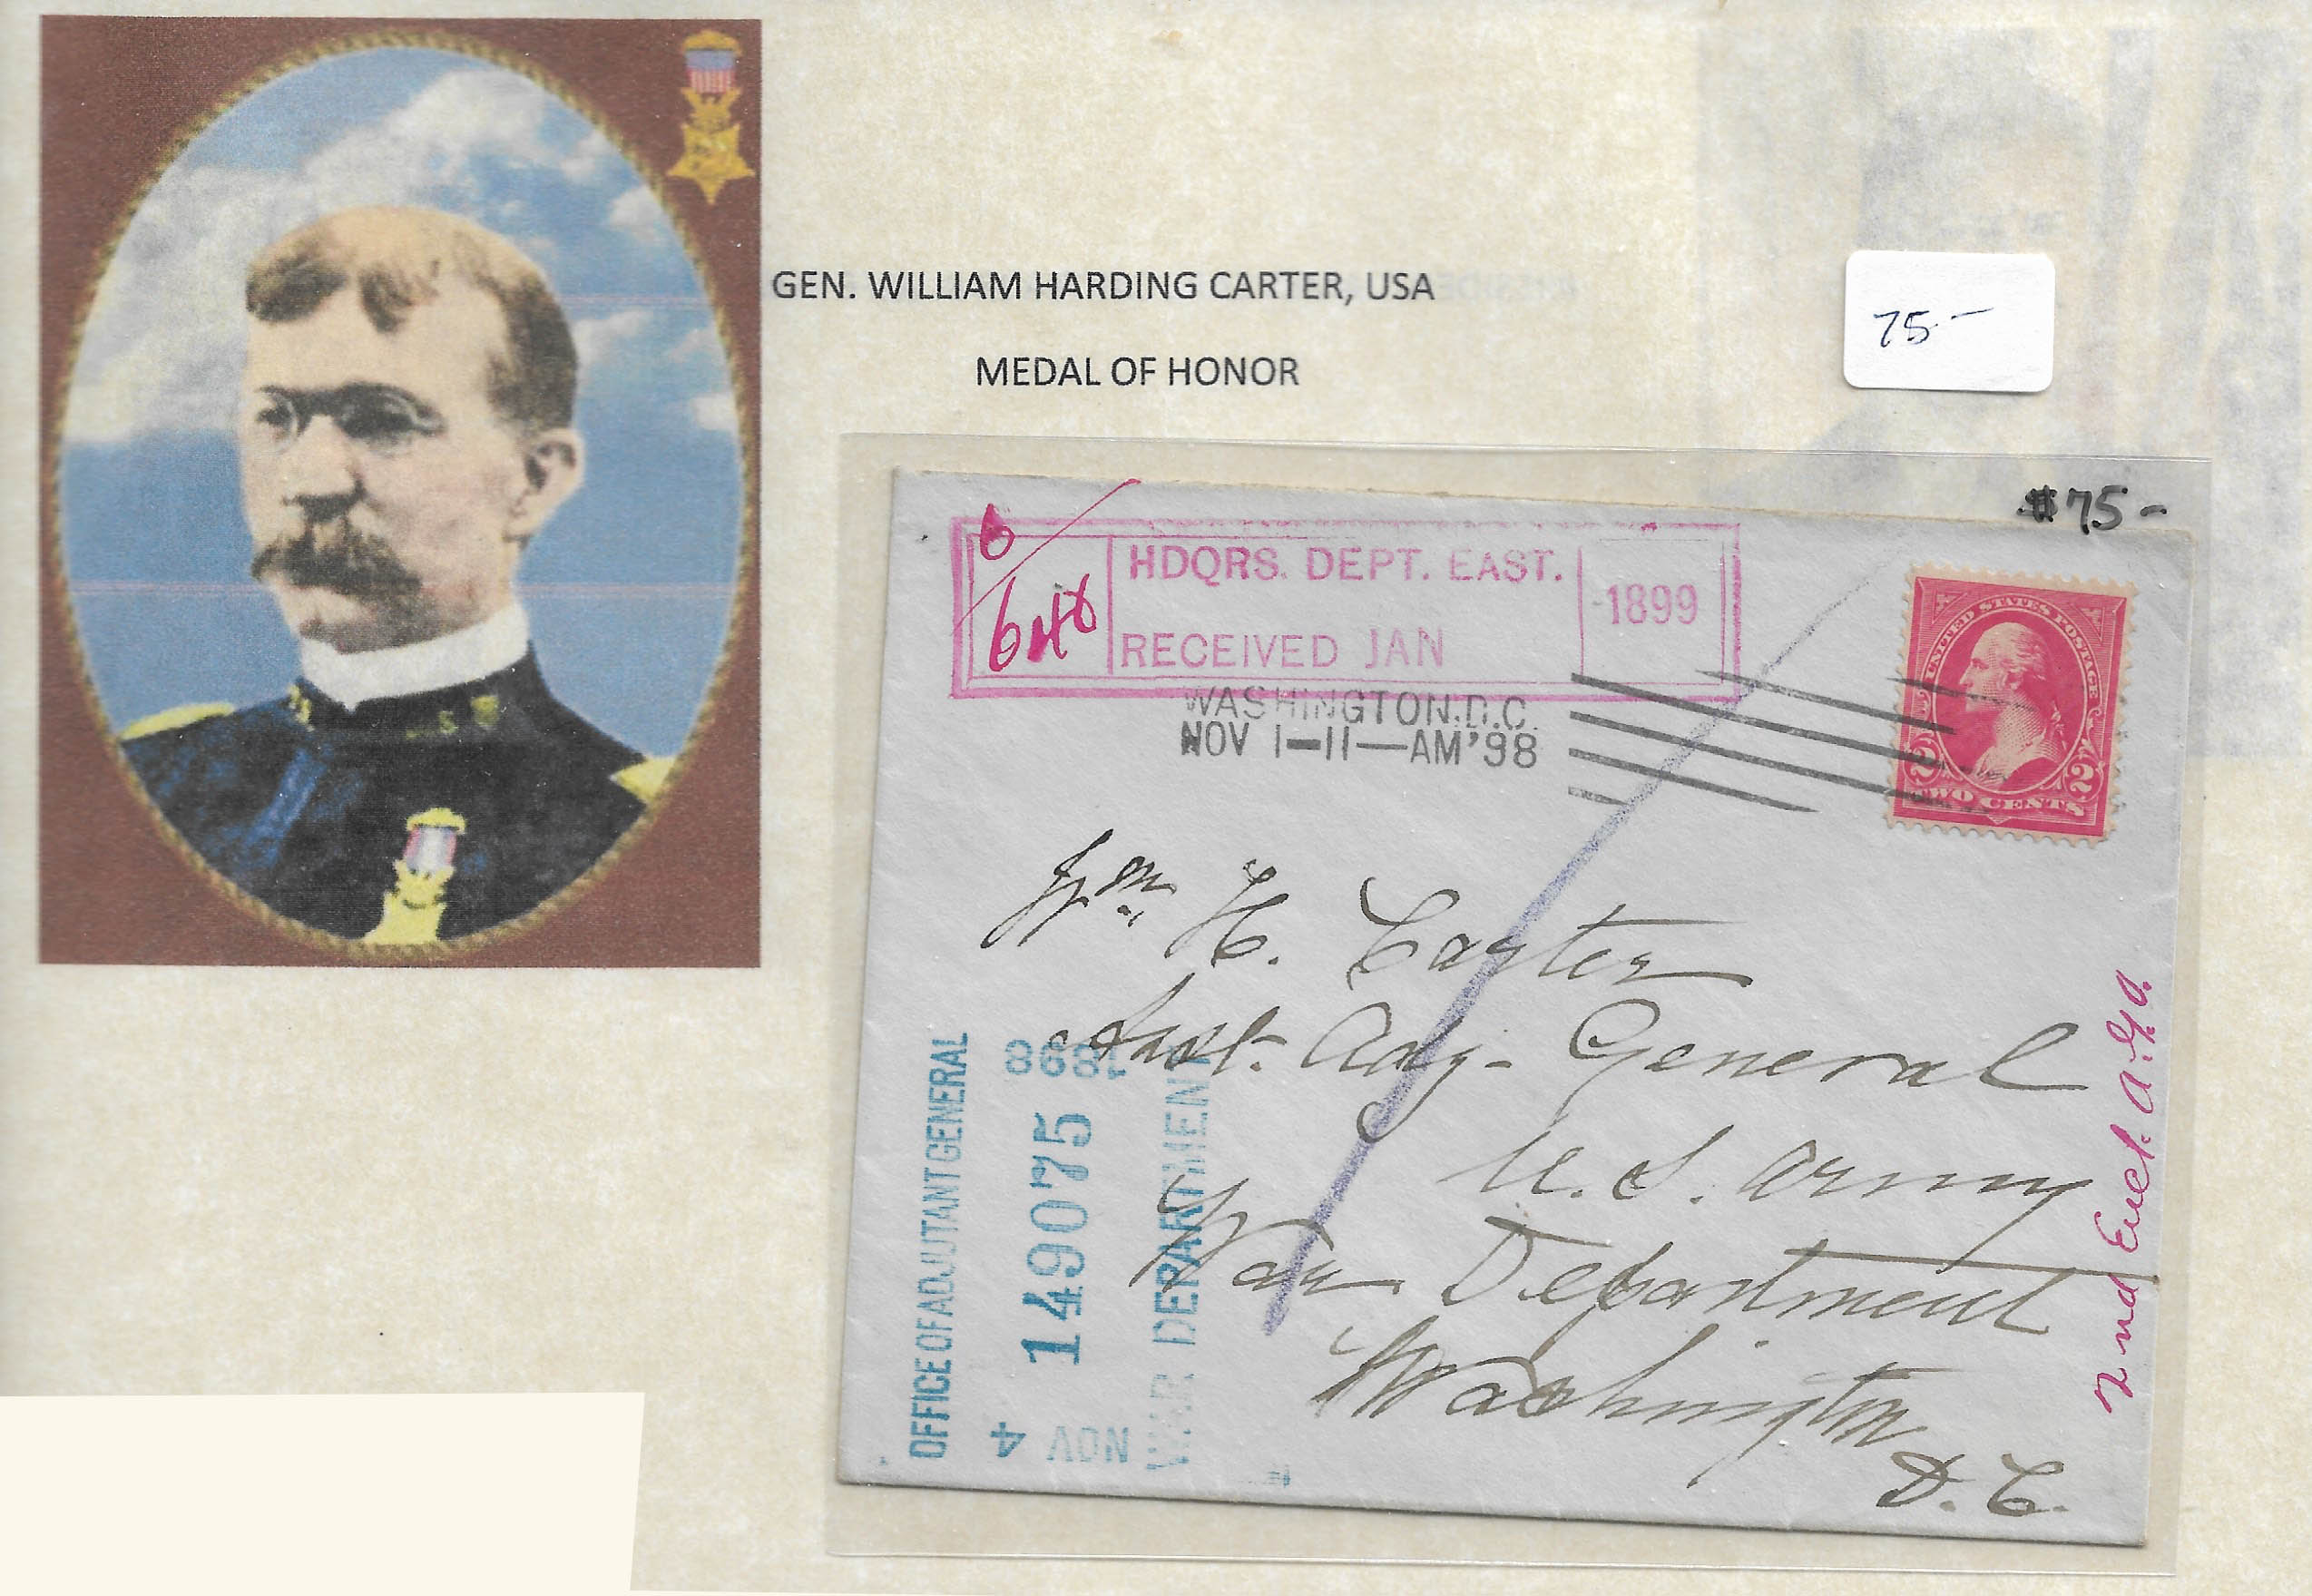 GEN. WILLIAM HARDING CARTER, USA
MEDAL OF HONOR
75-
$75-
6
646
HDQRS. DEPT. EAST.
RECEIVED JAN
1899
WASHINGTON, D.C.
NOV 1-11-AM '98
UNITED STATES POSTAGE
2 2
TWO CENTS
Wm. H. Carter
Asst. Adj- General
U. S. Army
War Department
Washington
D. C.
OFFICE OF ADJUTANT GENERAL
1898
149075
NOV 4
WAR DEPARTMENT
2nd Encl. A.G.O.